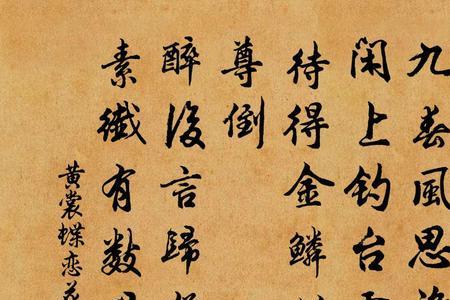 九春風思
閑上釣台
待得金鱗
尊倒
醉後言歸
素纖有数
黄裳蝶恋花